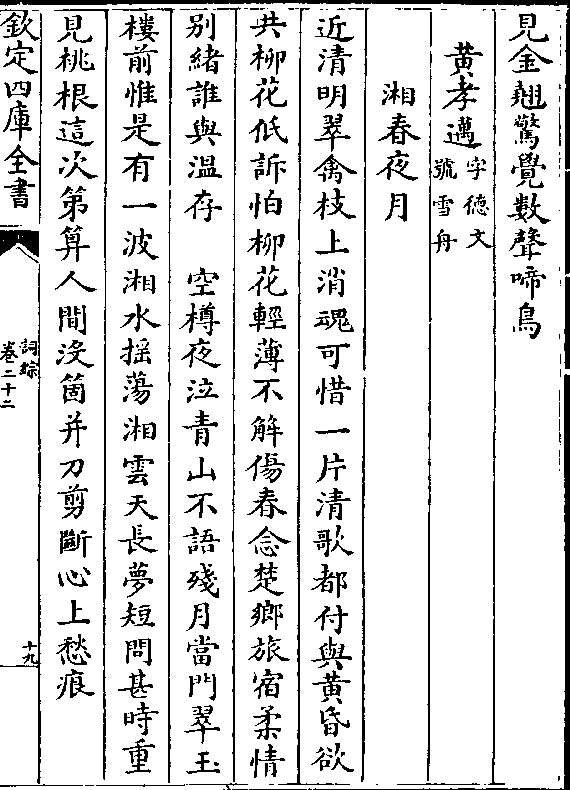 見金翹驚覺數聲啼鳥
黃孝邁字德文號雪舟
湘春夜月
近清明翠禽枝上消魂可惜一片清歌都付與黃昏欲
共柳花低訴怕柳花輕薄不解傷春念楚鄉旅宿柔情
別緒誰與溫存　空樽夜泣青山不語殘月當門翠玉
樓前惟是有一波湘水搖蕩湘雲天長夢短問甚時重
見桃根這次第算人間沒箇并刀剪斷心上愁痕
欽定四庫全書
詞綜
卷二十二
十九